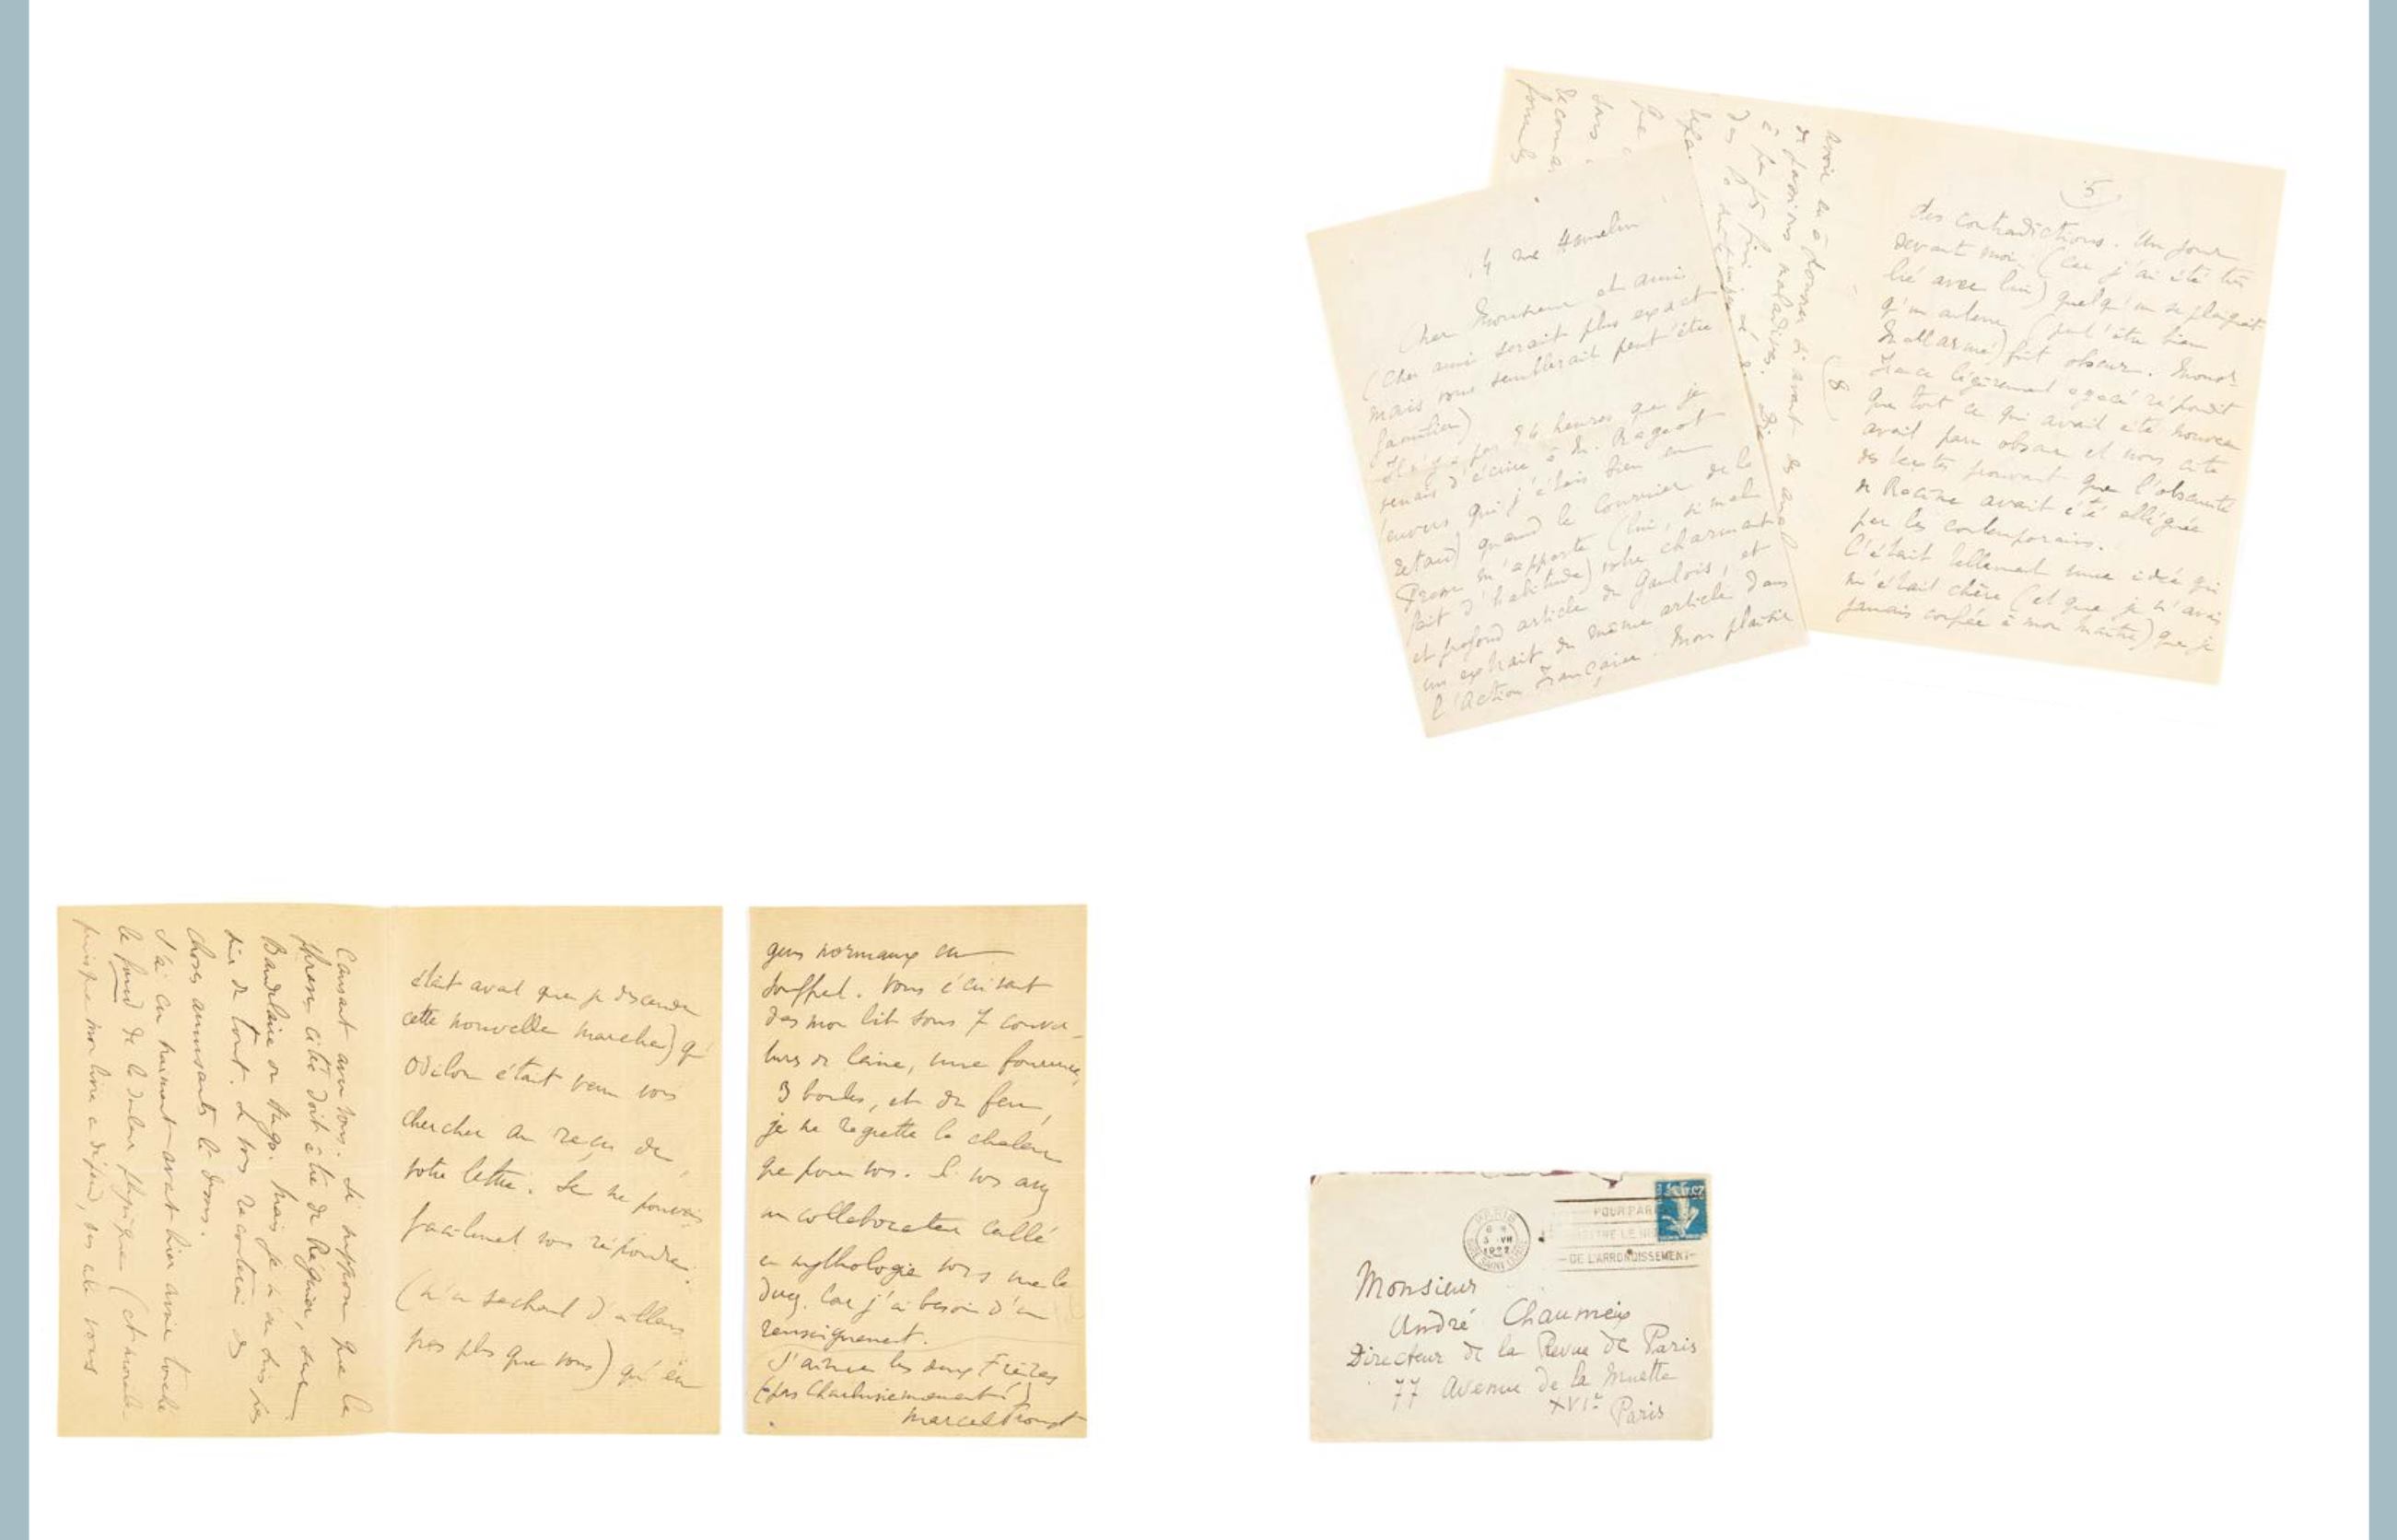 Causant avec vous. Je suppose que la
phrase citée doit être de Régnier, sinon
Baudelaire ou Hugo. Mais je n'en suis pas
sûr du tout. Je vous raconterai des
choses amusantes là-dessus.
J'ai cru vraiment avant hier avoir touché
le fond de la douleur physique (et morale
puisque mon livre
était avant que je descende
cette nouvelle marche) qu'
Odilon était venu vous
chercher au reçu de
votre lettre. Je ne pouvais
facilement vous répondre.
(n'en sachant d'ailleurs
pas plus que vous) qu'en
gens normaux en
souffrent. Vous écrivant
dans mon lit sous 7 couver-
tures de laine, une fourrure,
3 boules, et du feu,
je ne regrette la chaleur
que pour vous. Si vous avez
un collaborateur callé
en mythologie vous me le
direz. Car j'ai besoin d'un
renseignement.
J'aime les deux Frères
(pas Charlusiennement!)
Marcel Proust
4 rue Hamelin
Cher Monsieur et ami
(Cher ami serait plus exact
mais vous semblerait peut'être
familier)
Il n'y a pas 24 heures que je
venais d'écrire à M. Rageot
(envers qui j'étais bien en
retard) quand le Courrier de la
Presse m'apporte (lui, si mal
fait d'habitude) votre charmant
et profond article du Gaulois, et
un extrait du même article dans
l'Action Française. Mon plaisir
avoir eu à donner si avant
de passions maladives.
(8
5
des contradictions. Un jour
devant moi (car j'ai été très
lié avec lui) quelqu'un se plaignait
qu'un auteur (peut'être bien
Mallarmé) fût obscur. Monsr
France légèrement agacé répondit
que tout ce qui avait été nouveau
avait paru obscur et nous cita
des textes prouvant que l'obscurité
de Racine avait été alléguée
par les contemporains.
C'était tellement une idée qui
m'était chère (et que je n'avais
jamais confiée à mon maître) que je
PARIS
5 VII
1922
POUR PARIS
DE L'ARRONDISSEMENT
Monsieur
André Chaumeix
Directeur de la Revue de Paris
77 Avenue de la Muette
XVIe Paris